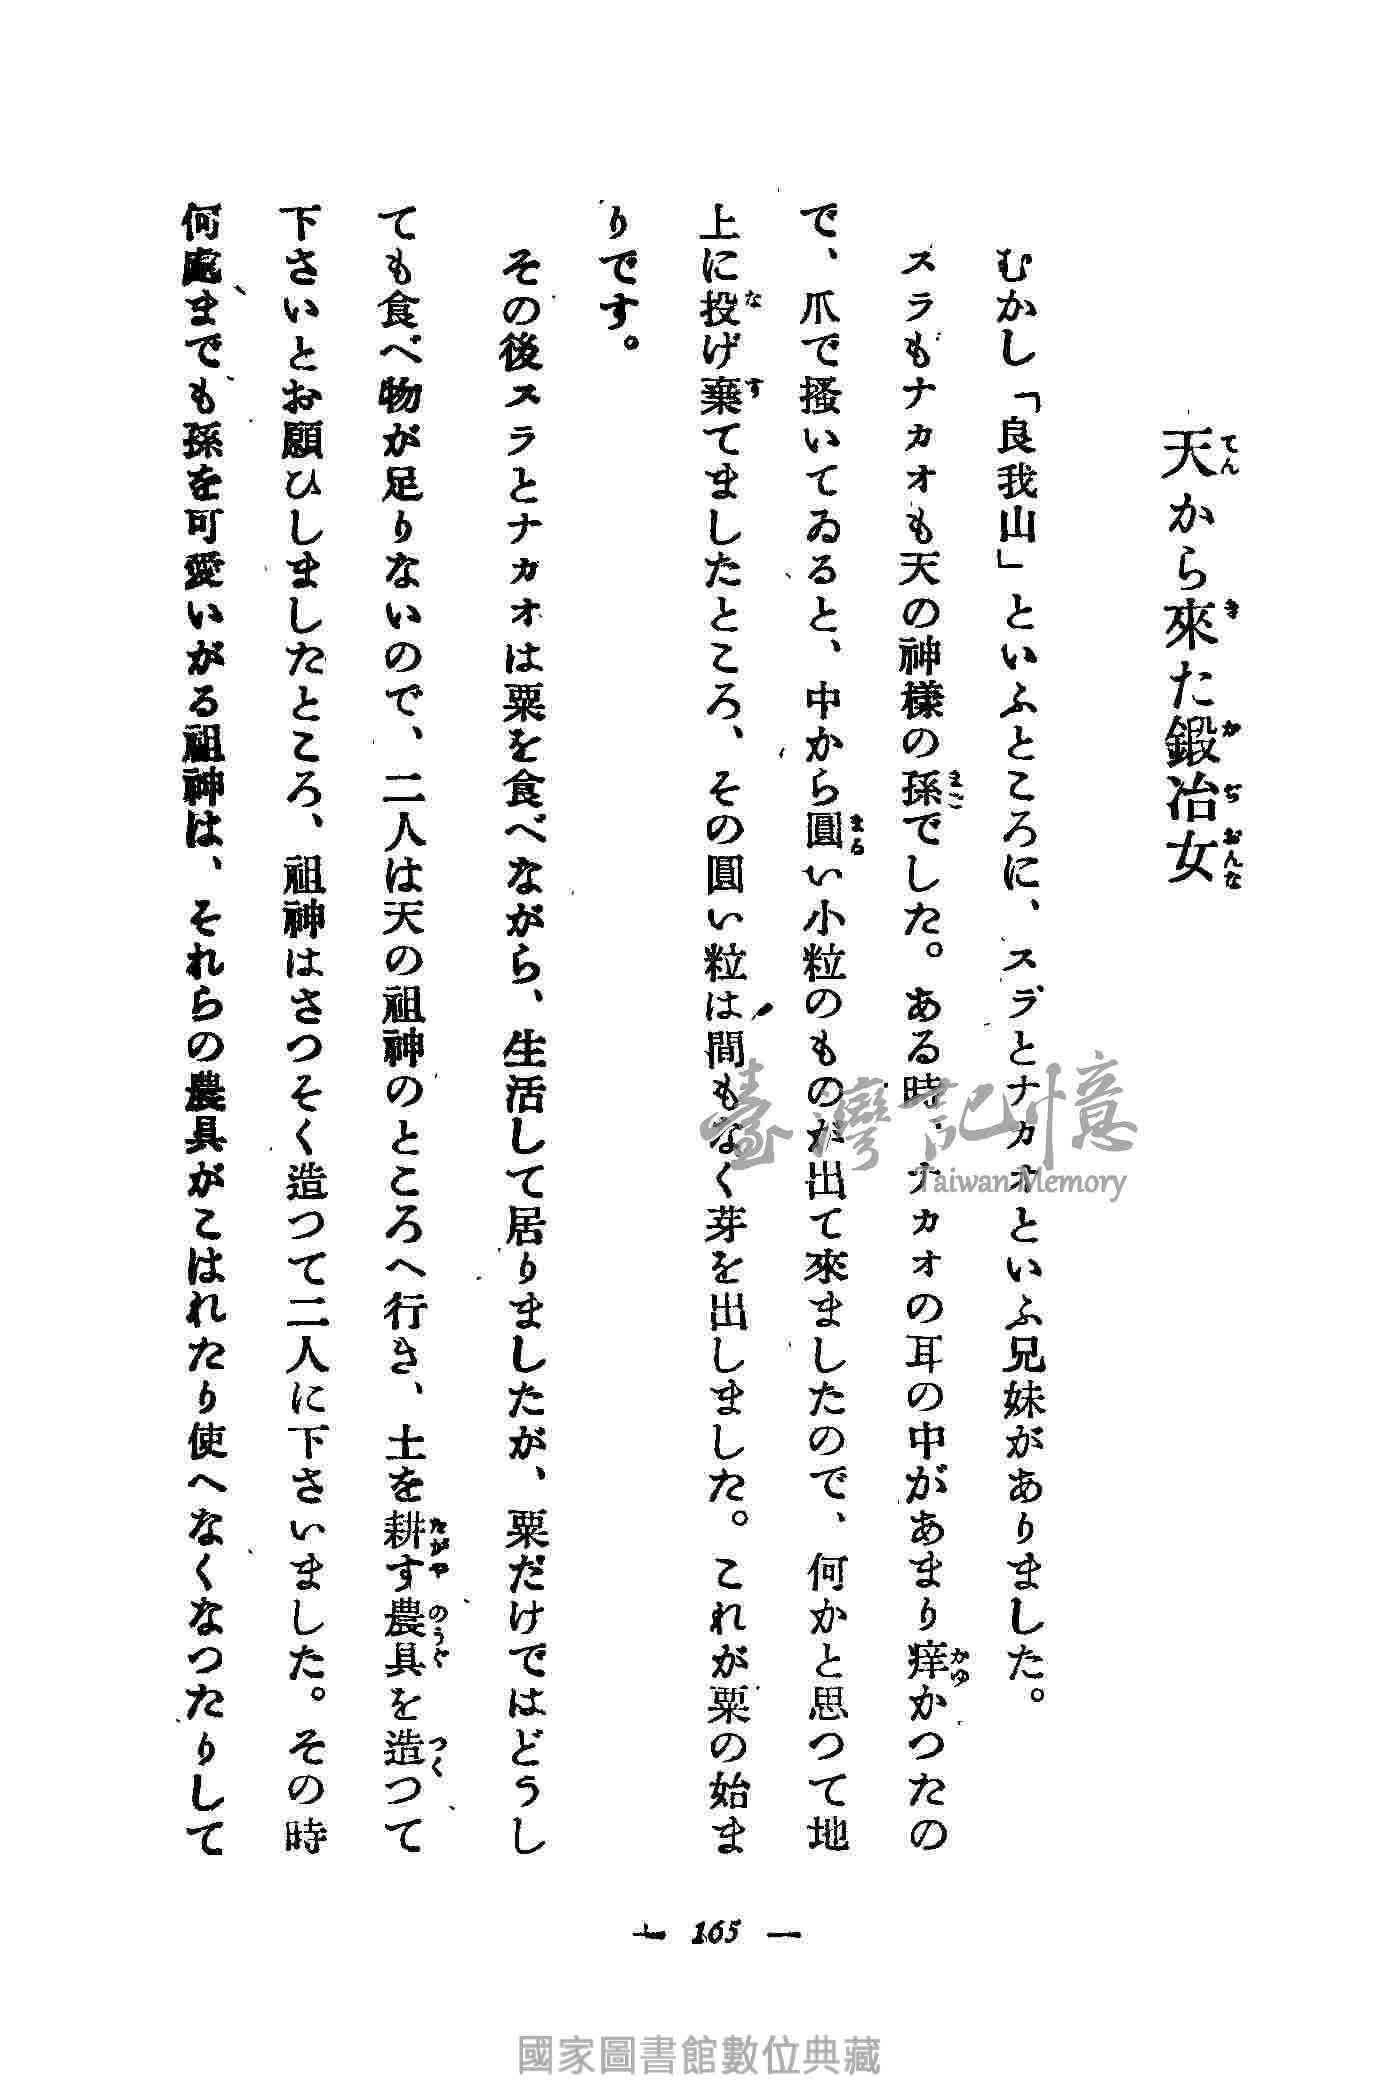 天から來た鍛冶女
むかし「良我山」といふところに、スラとナカオといふ兄妹がありました。
スラもナカオも天の神樣の孫でした。ある時、ナカオの耳の中があまり痒かつたの
で、爪で搔いてゐると、中から圓い小粒のものが出て來ましたので、何かと思つて地
上に投げ棄てましたところ、その圓い粒は間もなく芽を出しました。これが粟の始ま
りです。
その後スラとナカオは粟を食べながら、生活して居りましたが、粟だけではどうし
ても食べ物が足りないので、二人は天の祖神のところへ行き、土を耕す農具を造つて
下さいとお願ひしましたところ、祖神はさつそく造つて二人に下さいました。その時
何處までも孫を可愛いがる祖神は、それらの農具がこはれたり使へなくなつたりして
— 165 —
臺灣記憶
Taiwan Memory
國家圖書館數位典藏